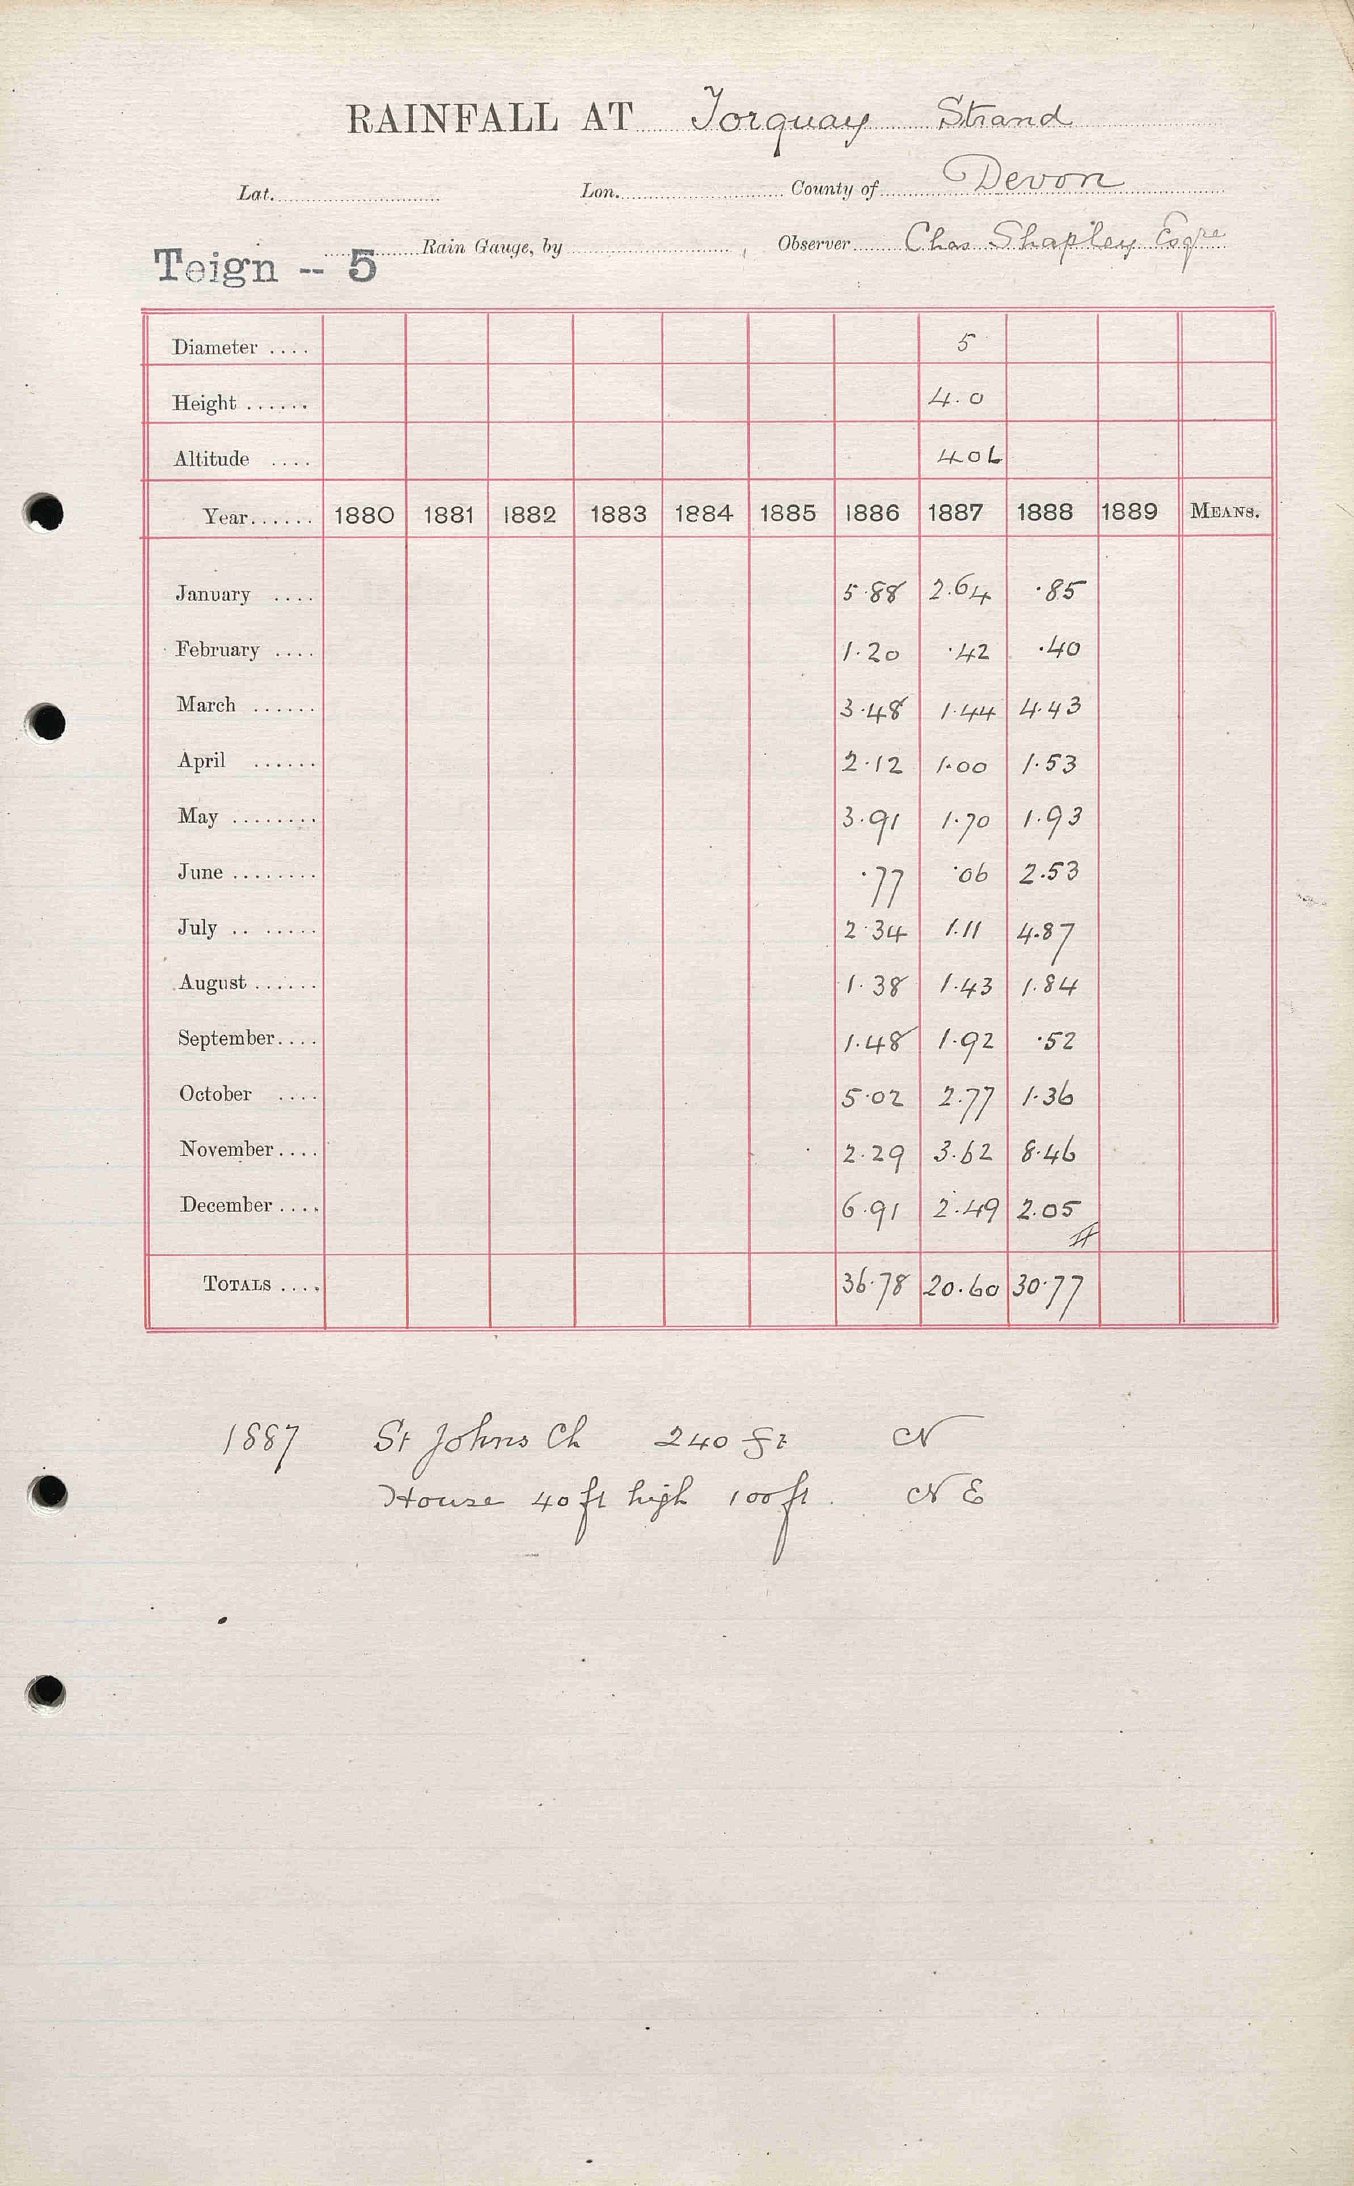 RAINFALL AT Torquay Strand
Lat. Lon. County of Devon
Rain Gauge, by , Observer Chas Shapley Esqre
Teign -- 5
Diameter .... 5
Height ...... 4.0
Altitude .... 406
Year...... 1880 1881 1882 1883 1884 1885 1886 1887 1888 1889 MEANS.
January .... 5.88 2.64 .85
February .... 1.20 .42 .40
March ...... 3.48 1.44 4.43
April ...... 2.12 1.00 1.53
May ........ 3.91 1.70 1.93
June ........ .77 .06 2.53
July .. ..... 2.34 1.11 4.87
August ...... 1.38 1.43 1.84
September.... 1.48 1.92 .52
October .... 5.02 2.77 1.36
November.... 2.29 3.62 8.46
December .... 6.91 2.49 2.05
TOTALS .... 36.78 20.60 30.77
1887 St Johns Ch 240 ft N
House 40 ft high 100 ft. N E